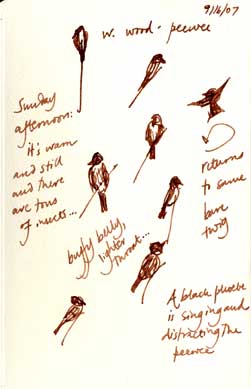 9/16/07
w. wood-peewee
Sunday
afternoon:
it's warm
and still
and there
are tons
of insects...
returns
to same
bare
twig
buffy belly,
lighter
throat...
A black phoebe
is singing and
distracting the
peewee